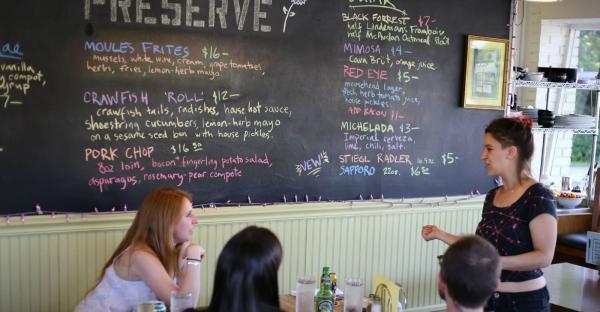 PRESERVE
vanilla,
MOULES FRITES $16-
mussels, white wine, cream, grape tomatoes,
herbs, fries, lemon-herb mayo.
CRAWFISH 'ROLL' $12-
crawfish tails, radishes, house hot sauce,
shoestring cucumbers, lemon-herb mayo
on a sesame seed bun with house pickles.
PORK CHOP $16.50
8oz loin, bacon + fingerling potato salad,
asparagus, rosemary-pear compote
BLACK FORREST $7-
half Lindemans Framboise
half McAuslan Oatmeal Stout
MIMOSA $4-
Cava Brut, orange juice
RED EYE $5-
moosehead lager,
herb tomato juice,
house pickles.
ADD BACON $1-
MICHELADA $3-
Imperial cerveza,
lime, chili, salt.
NEW
STIEGL RADLER $5-
SAPPORO 22oz. $6.50